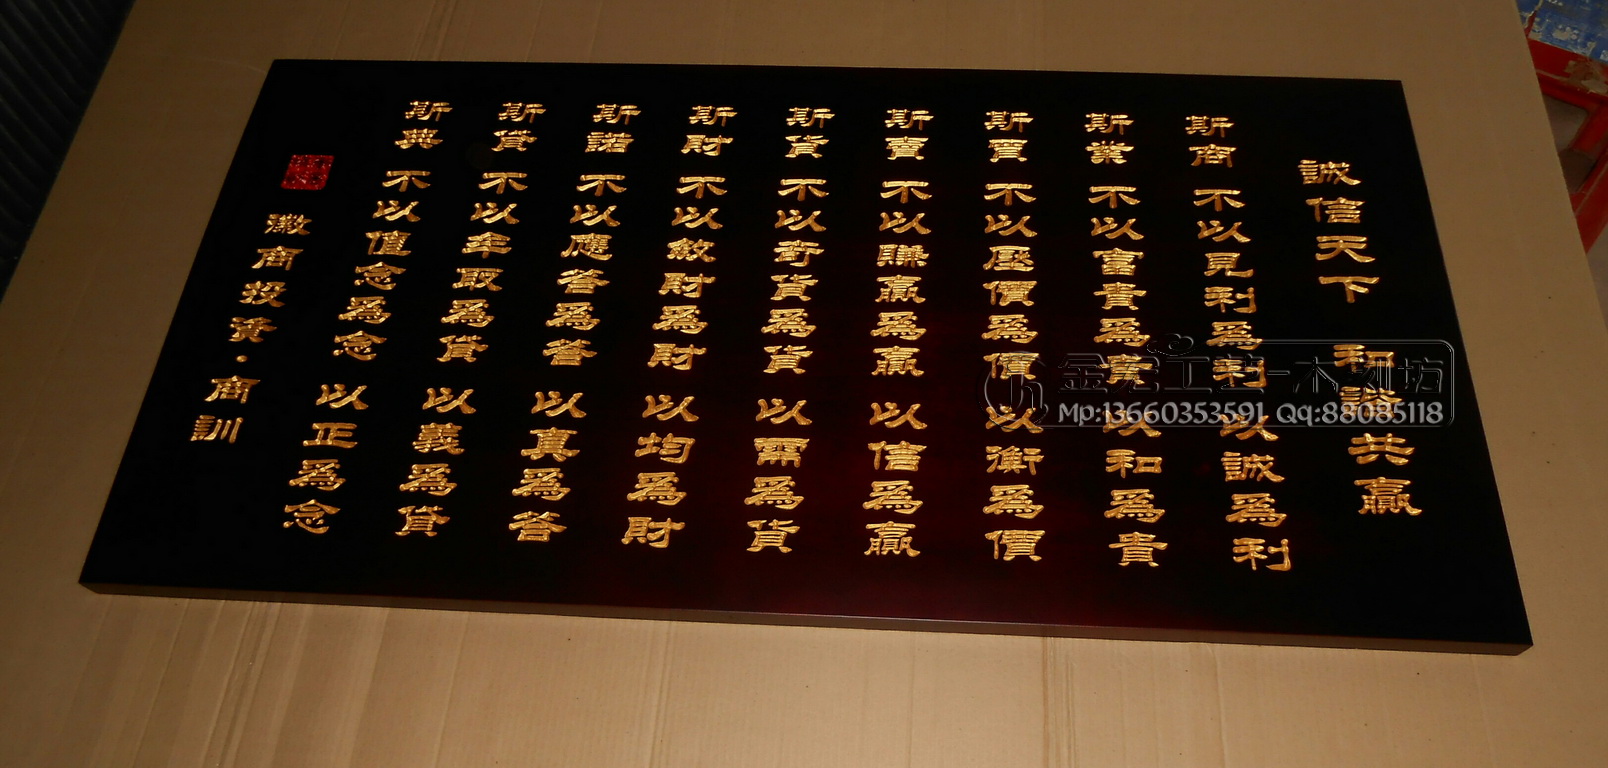 誠信天下 和諧共贏
斯商 不以見利爲利 以誠爲利
斯業 不以富貴爲貴 以和爲貴
斯買 不以壓價爲價 以衡爲價
斯賣 不以賺贏爲贏 以信爲贏
斯貨 不以奇貨爲貨 以需爲貨
斯財 不以斂財爲財 以均爲財
斯諾 不以應答爲答 以真爲答
斯貸 不以牟取爲貸 以義爲貸
斯典 不以值念爲念 以正爲念
徽商投資·商訓
金龙工艺-木刻坊
Mp:13660353591 Qq:88085118